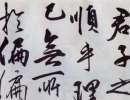 君子之
順乎理
已無所
於偏偏